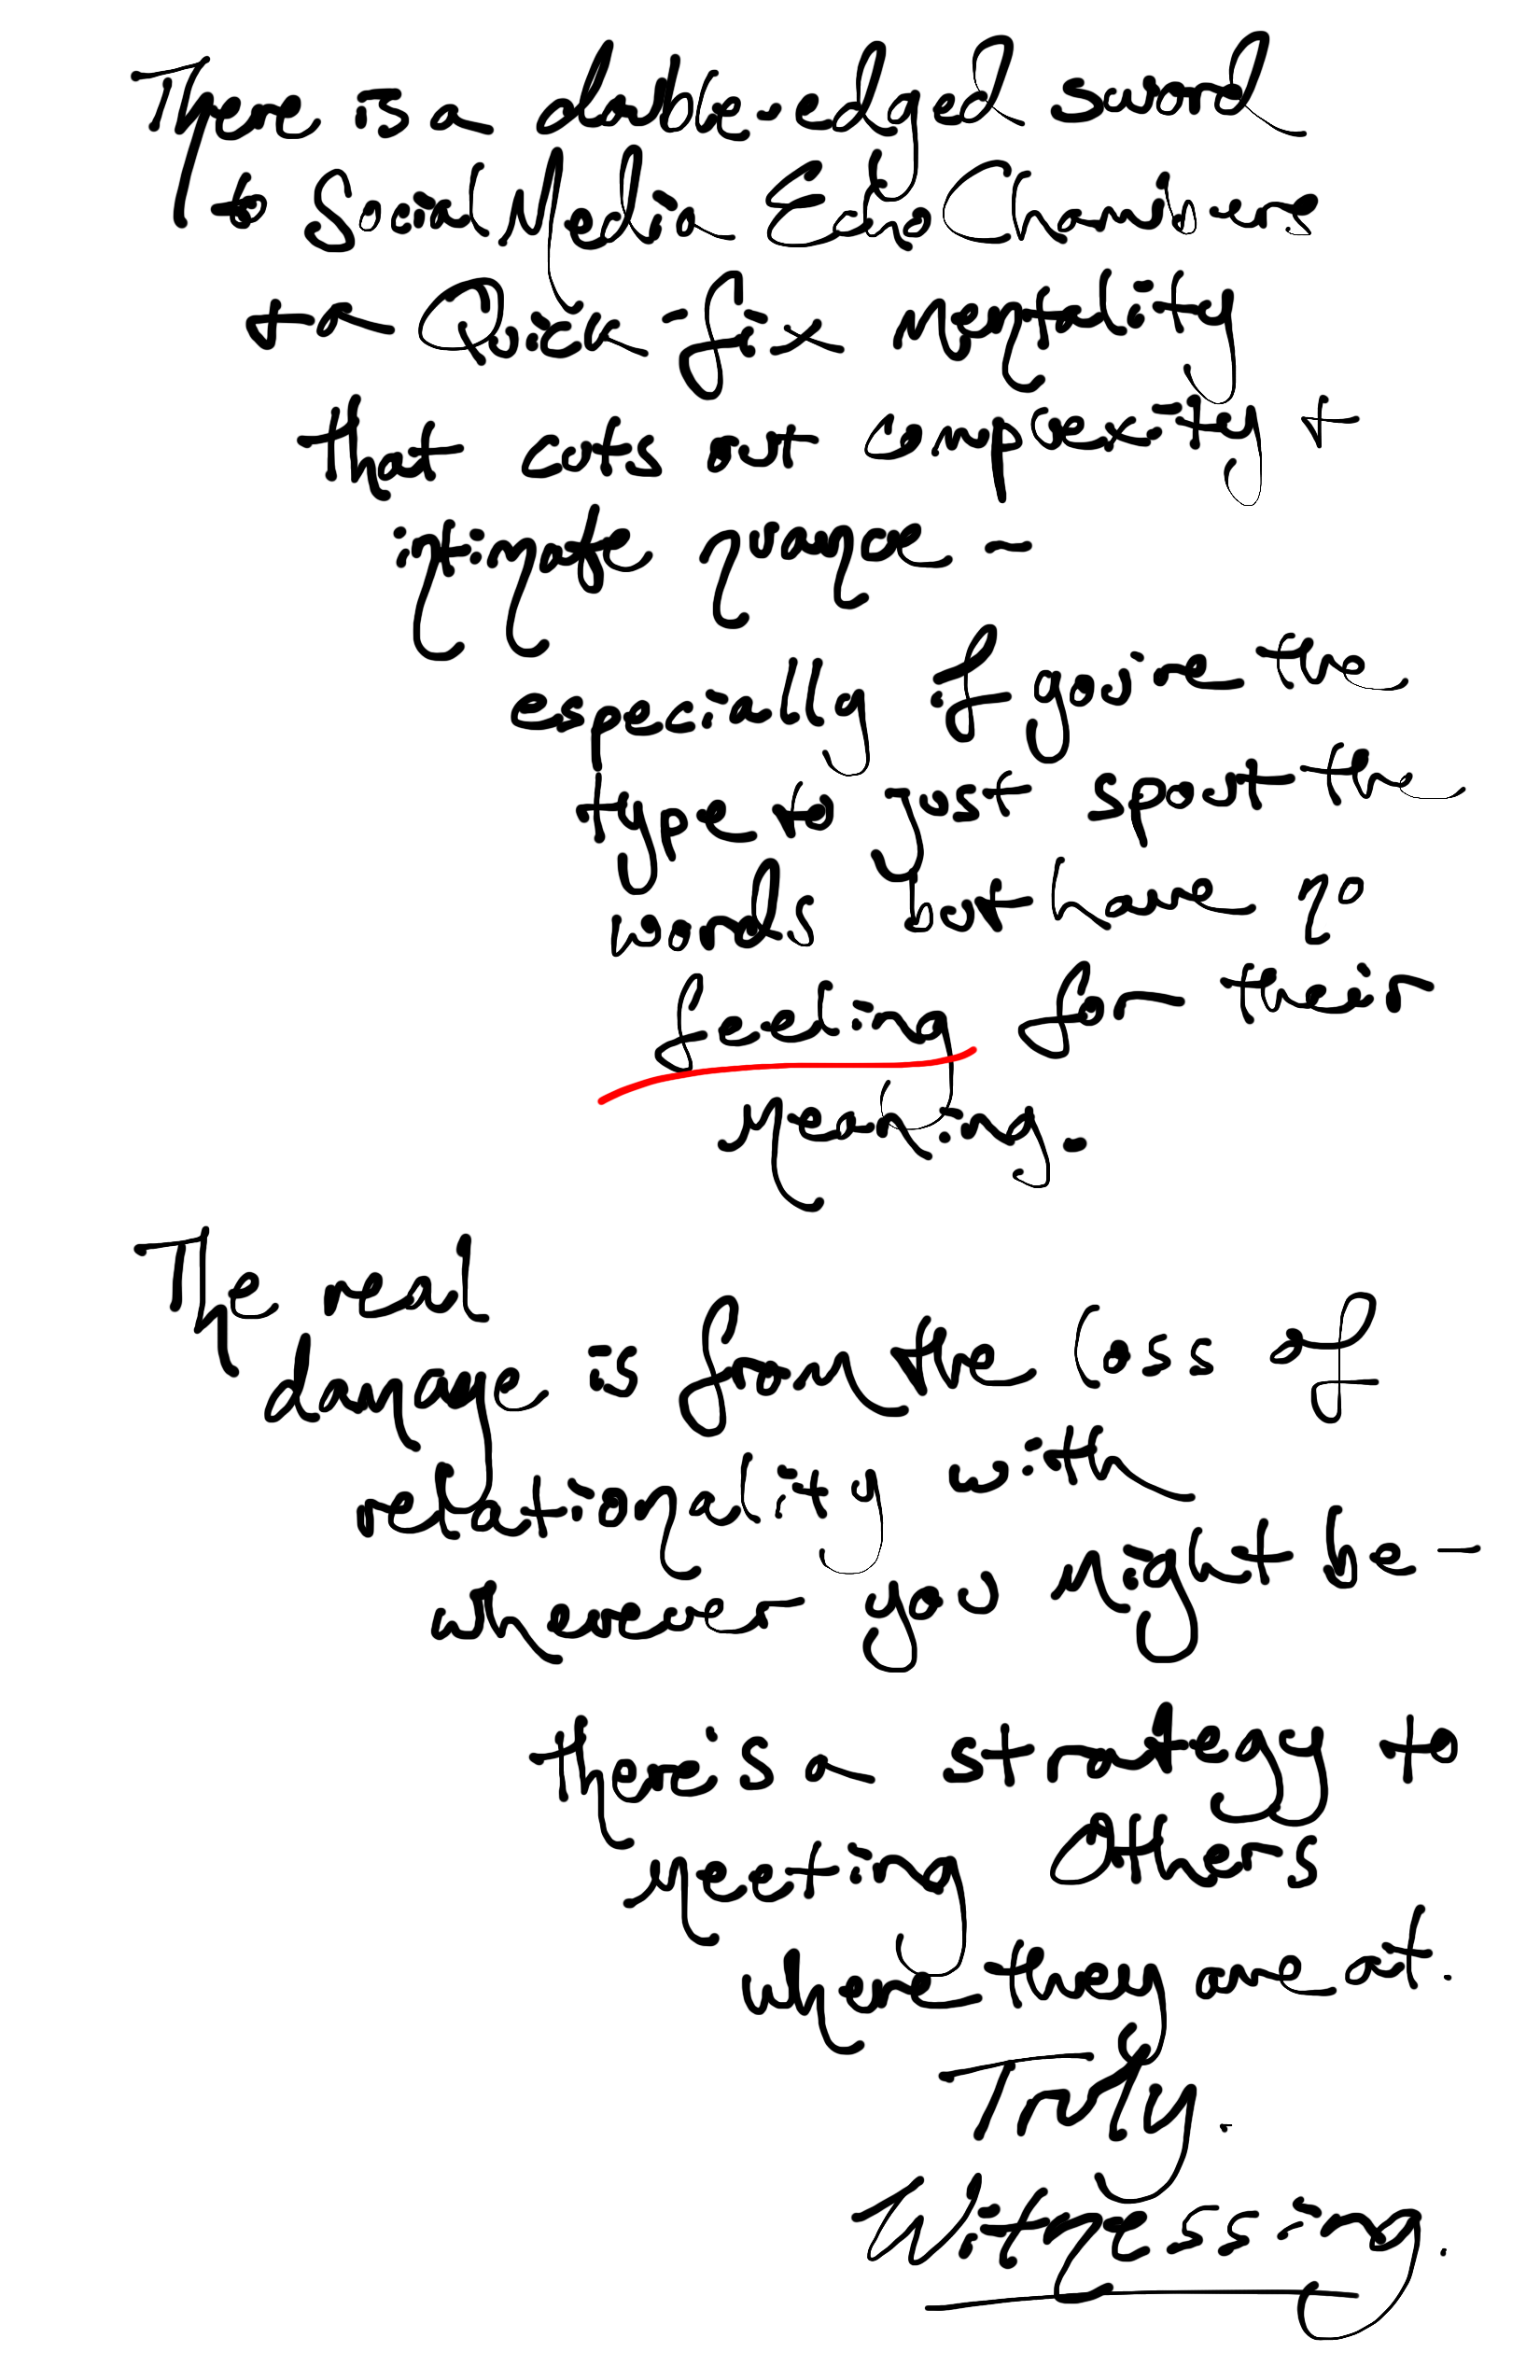 There is a double-edged sword
to Social Media Echo Chambers
to a Quick-fix mentality
that cuts out complexity +
intimate nuance -
especially if you're the
type to just spout the
words but have no
feeling for their
meaning.
The real
damage is from the loss of
relationality with
wherever you might be -
there's a strategy to
meeting Others
where they are at.
Truly.
Witnessing.